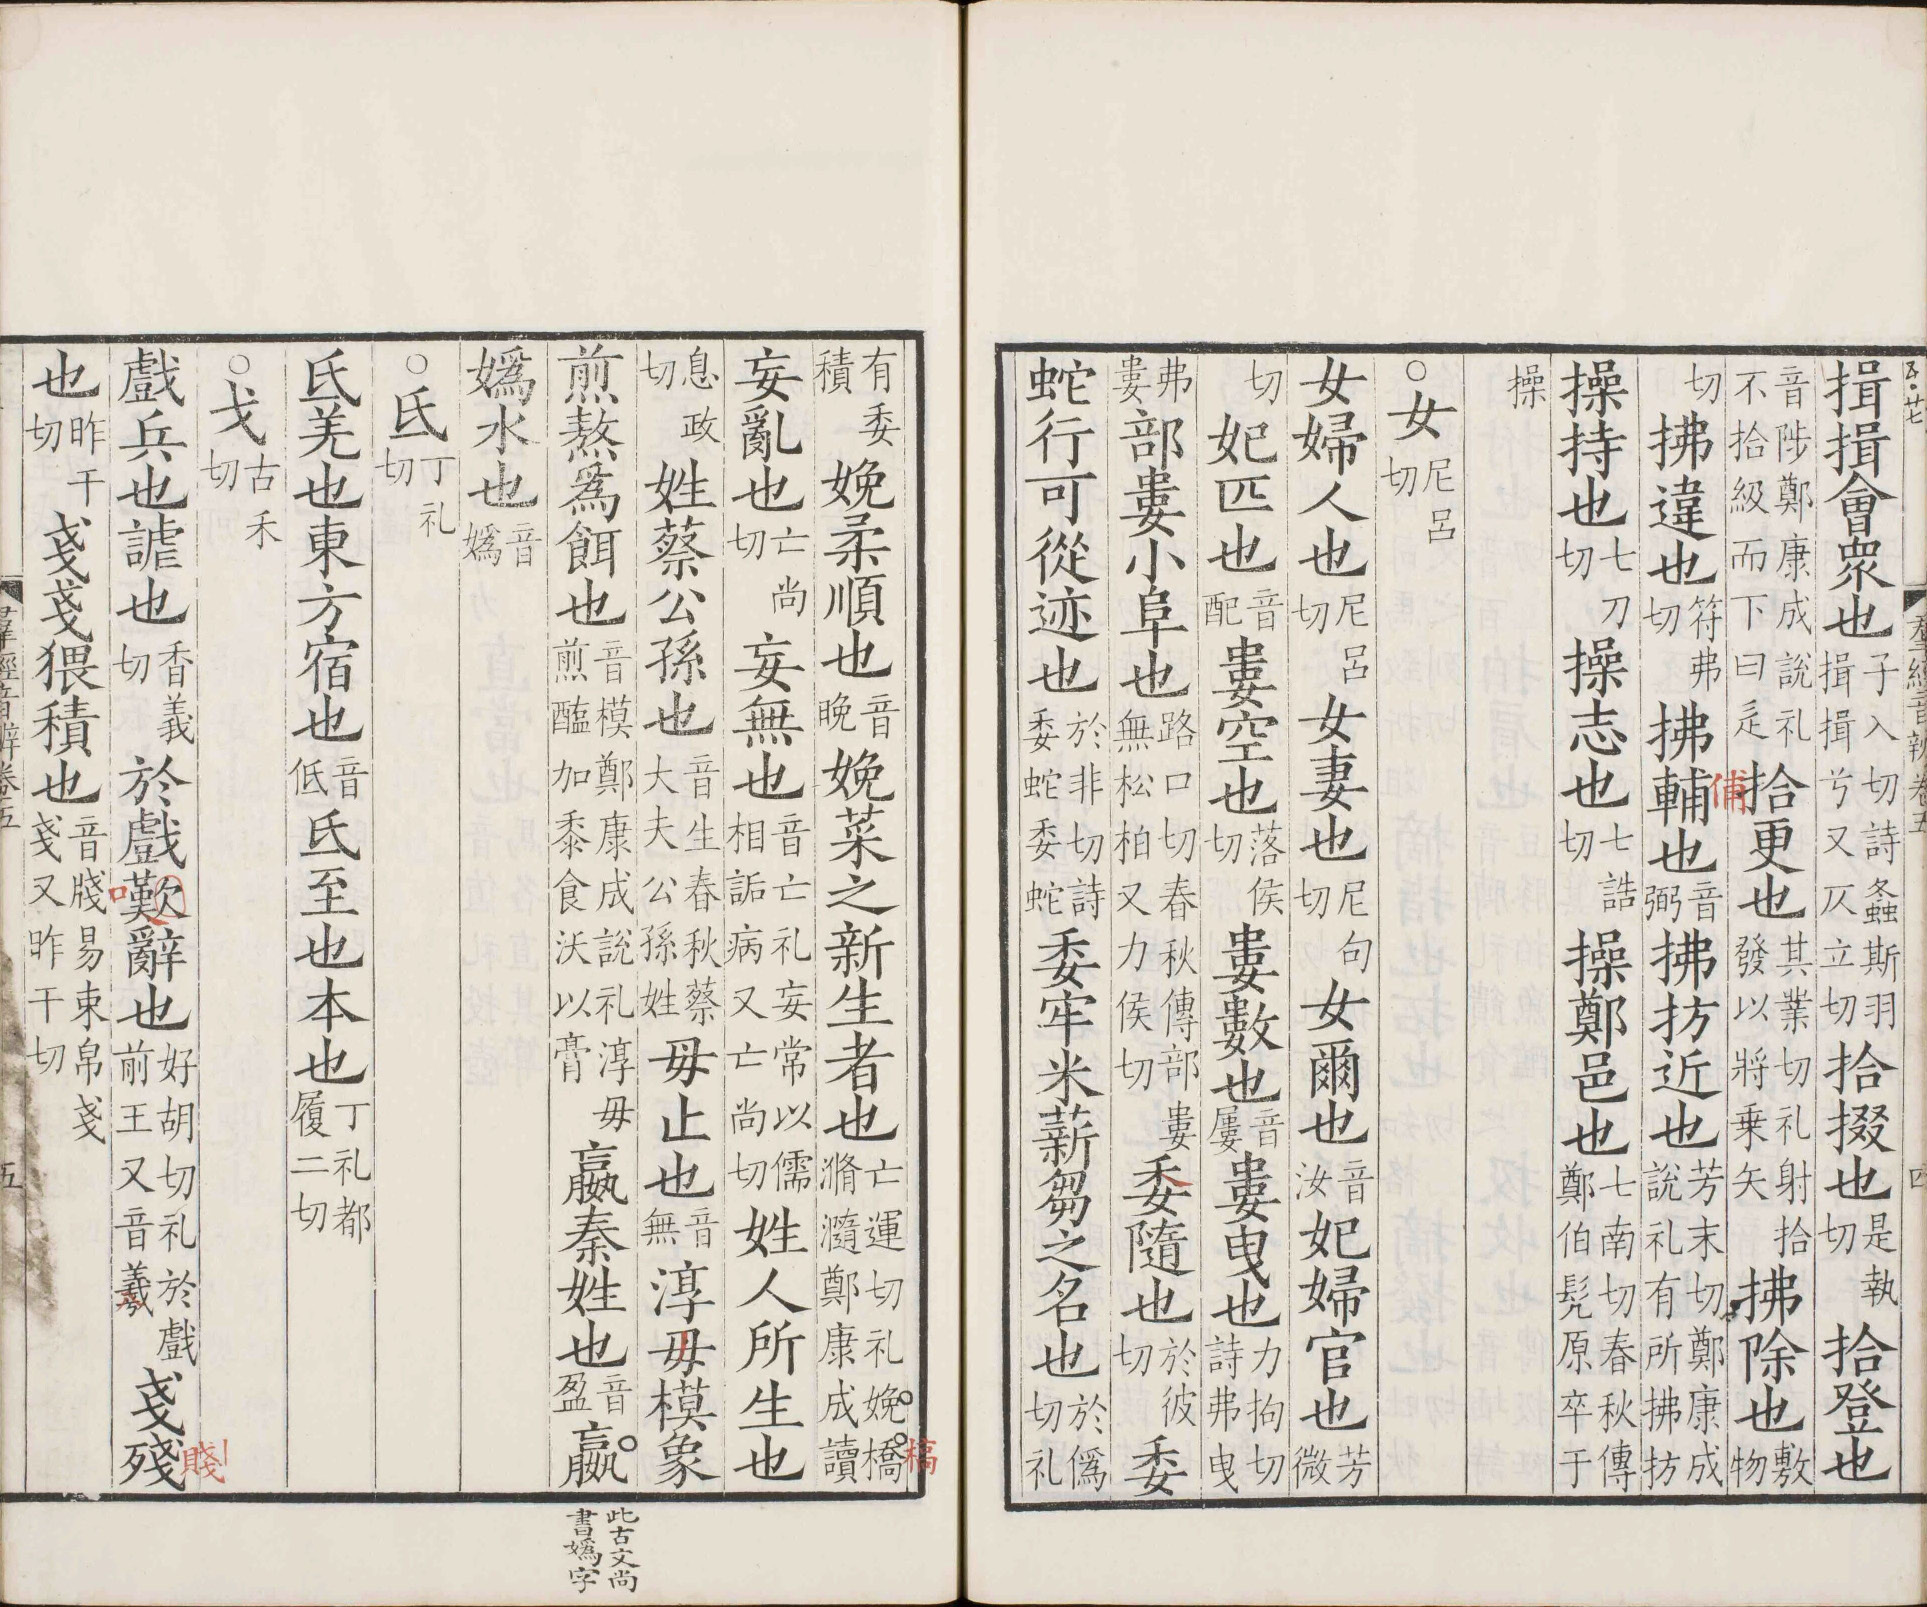 揖揖會衆也子入切詩螽斯羽揖揖兮又仄立切拾掇也是執切拾登也
音陟鄭康成說礼不拾級而下曰辵拾更也其業切礼射拾發以將乗矢拂除也敷物
切拂違也符弗切拂輔也音弼拂拭近也芳末切鄭康成說礼有所拂拭
操持也七刀切操志也七誥切操鄭邑也七南切春秋傳鄭伯髠原卒于
操
○女尼呂切
女婦人也尼呂切女妻也尼句切女爾也音汝妃婦官也芳微
切妃匹也音配婁空也落侯切婁數也音屢婁曳也力拘切詩弗曳
弗婁部婁小阜也路口切春秋傳部婁無松柏又力侯切委隨也於彼切委
蛇行可從迹也於非切詩委蛇委蛇委牢米薪芻之名也於僞切礼
有委積娩柔順也音晚娩菜之新生者也亡運切礼娩槗滫瀡鄭康成讀
妄亂也亡尚切妄無也音亡礼妄常以儒相詬病又亡尚切姓人所生也
息政切姓蔡公孫也音生春秋蔡大夫公孫姓毋止也音無淳毋模象
煎熬爲餌也音模鄭康成說礼淳毋煎醢加黍食沃以膏嬴秦姓也音盈嬴
嬀水也音嬀
○氐丁礼切
氐羌也東方宿也音低氐至也本也丁礼都履二切
○戈古禾切
戲兵也謔也香義切於戲歎辭也好胡切礼於戲前王又音羲戔殘
也昨干切戔戔猥積也音牋易束帛戔戔又昨干切
羣經音辨卷五
四
五
五·廿七
俌
槁
賤
此古文尚
書嬀字